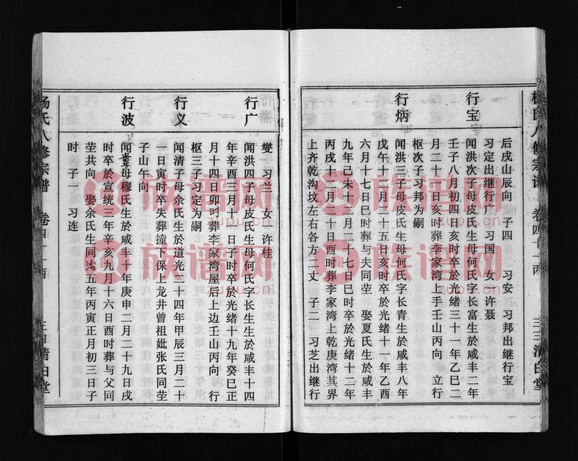 杨氏八修宗谱 卷四
清白堂
后戌山辰向 子四 习安 习邦出继行宝
习定出继行广 习国 女一 许聂
行宝
闻洪次子母皮氏生母何氏字长富生於咸丰二年
壬子八月初四日亥时卒於光绪三十一年乙巳二
月二十八日亥时葬李家湾上手壬山丙向 立行
枢次子习邦为嗣
行炳
闻洪三子母皮氏生母何氏字长青生於咸丰八年
戊午十二月二十五日亥时卒於光绪十一年乙酉
六月十七日巳时葬与夫同茔 娶夏氏生於咸丰
九年己未二月十七日巳时卒於光绪十二年
丙戌十二月二十日酉时葬李家湾上乾庚湾其界
上齐乾沟坟左右各六丈 子二 习芝出继行
燮 习兰 女一 许桂
行广
闻洪四子母皮氏生母何氏字长生生於咸丰十四
年辛酉三月十一日子时卒於光绪十九年癸巳正
月十四日卯时葬李家湾屋后上边壬山丙向 行
枢三子习定为嗣
行义
闻清子母余氏生於道光二十四年甲辰三月二十
一日寅时卒失葬撞下保上龙井曾祖妣张氏同茔
子山午向
行波
闻音子母穆氏生於咸丰十年庚申二月二十九日戌
时卒於宣统三年辛亥九月十六日酉时葬与父同
茔共向 娶余氏生於同治五年丙寅正月初三日子
时 子一 习连
杨氏八修宗谱 卷四
清白堂
族谱网
族谱网